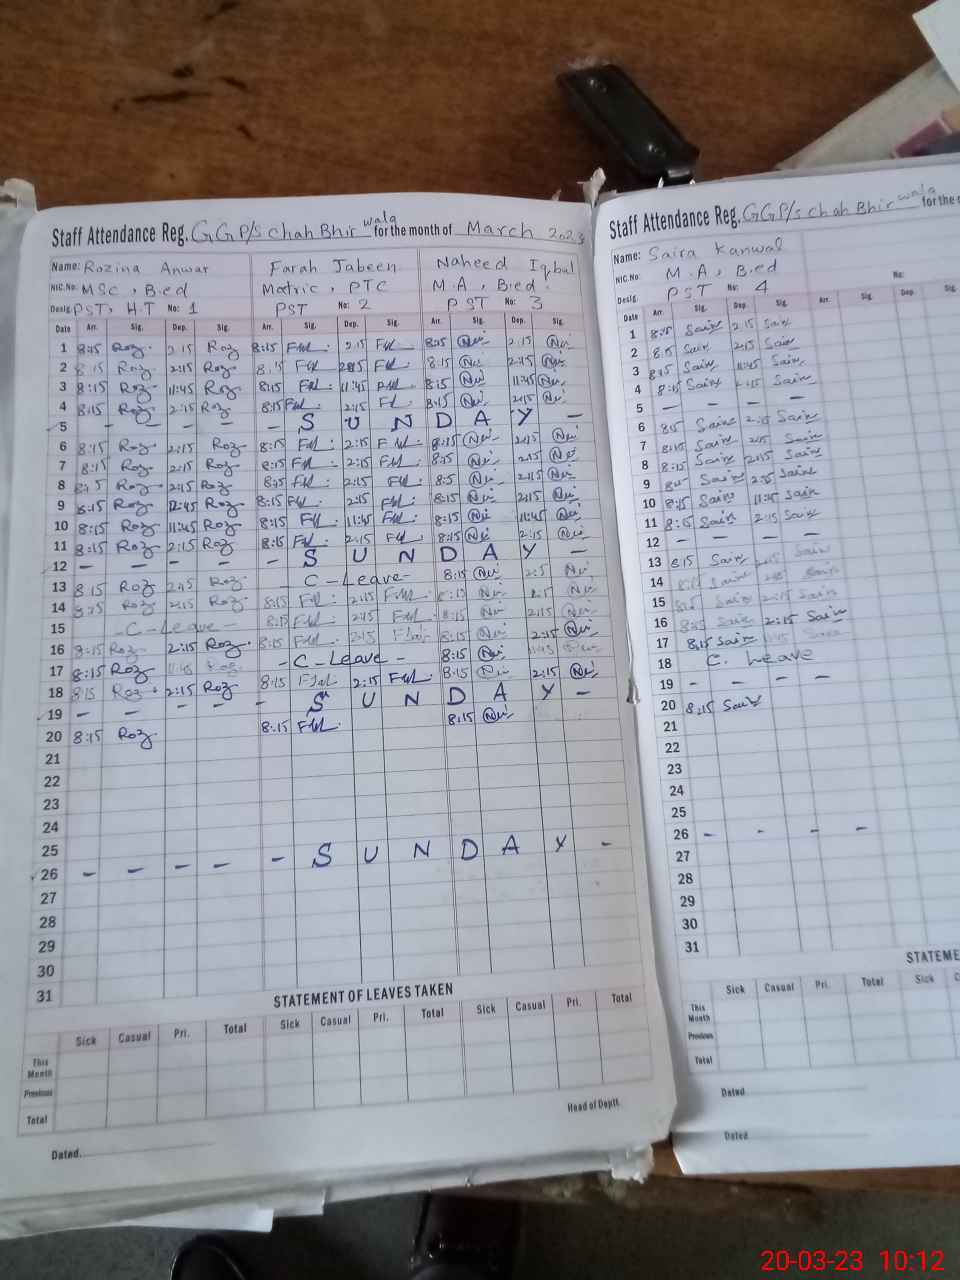 Staff Attendance Reg. GGP/s chah Bhir wala for the month of March 2023
Name: Rozina Anwar Farah Jabeen Naheed Iqbal
NIC.No: MSc, B.ed Matric, PTC M.A, B.ed.
Desig. PST, H.T No: 1 PST No: 2 PST No: 3
Date Arr. Sig. Dep. Sig. Arr. Sig. Dep. Sig. Arr. Sig. Dep. Sig.
1 8:15 Roz 2:15 Roz 8:15 2:15 8:15 2:15
2 8:15 Roz 2:15 Roz 8:15 2:15 8:15 2:15
3 8:15 Roz 11:45 Roz 8:15 11:45 8:15 11:45
4 8:15 Roz 2:15 Roz 8:15 2:15 8:15 2:15
5 - - - - - S U N D A Y -
6 8:15 Roz 2:15 Roz 8:15 2:15 8:15 2:15
7 8:15 Roz 2:15 Roz 8:15 2:15 8:15 2:15
8 8:15 Roz 2:15 Roz 8:15 2:15 8:15 2:15
9 8:15 Roz Roz 8:15 2:15 8:15 2:15
10 8:15 Roz 11:45 Roz 8:15 11:45 8:15 11:45
11 8:15 Roz 2:15 Roz 8:15 2:15 8:15 2:15
12 - - - - - S U N D A Y -
13 8:15 Roz 2:15 Roz - C-Leave- 8:15
14 8:15 Roz 2:15 Roz 8:15 2:15 8:15 2:15
15 -C-Leave- 8:15 2:15 8:15 2:15
16 8:15 Roz 2:15 Roz 8:15 2:15 8:15 2:15
17 8:15 Roz 11:45 Roz -C-Leave- 8:15 11:45
18 8:15 Roz 2:15 Roz 8:15 2:15 8:15 2:15
19 - - - - - S U N D A Y -
20 8:15 Roz 8:15 8:15
21
22
23
24
25
26 - - - - - S U N D A Y -
27
28
29
30
31
STATEMENT OF LEAVES TAKEN
Sick Casual Pri. Total Sick Casual Pri. Total Sick Casual Pri. Total
This Month
Previous
Total
Head of Deptt.
Dated.
Staff Attendance Reg. GGP/s chah Bhir wala for the
Name: Saira Kanwal
NIC.No: M.A, B.ed No:
Desig. PST No: 4
Date Arr. Sig. Dep. Sig. Arr. Sig. Dep.
1 8:15 Saira 2:15 Saira
2 8:15 Saira 2:15 Saira
3 8:15 Saira 11:45 Saira
4 8:15 Saira 2:15 Saira
5 - - - -
6 8:15 Saira 2:15 Saira
7 8:15 Saira 2:15 Saira
8 8:15 Saira 2:15 Saira
9 8:15 Saira 2:15 Saira
10 8:15 Saira 11:45 Saira
11 8:15 Saira 2:15 Saira
12 - - - -
13 8:15 Saira Saira
14 8:15 Saira Saira
15 8:15 Saira 2:15 Saira
16 8:15 Saira 2:15 Saira
17 8:15 Saira Saira
18 C. Leave
19 - - - -
20 8:15 Saira
21
22
23
24
25
26 - - - -
27
28
29
30
31
STATEME
Sick Casual Pri. Total Sick
This Month
Previous
Total
Dated
Dated
20-03-23 10:12